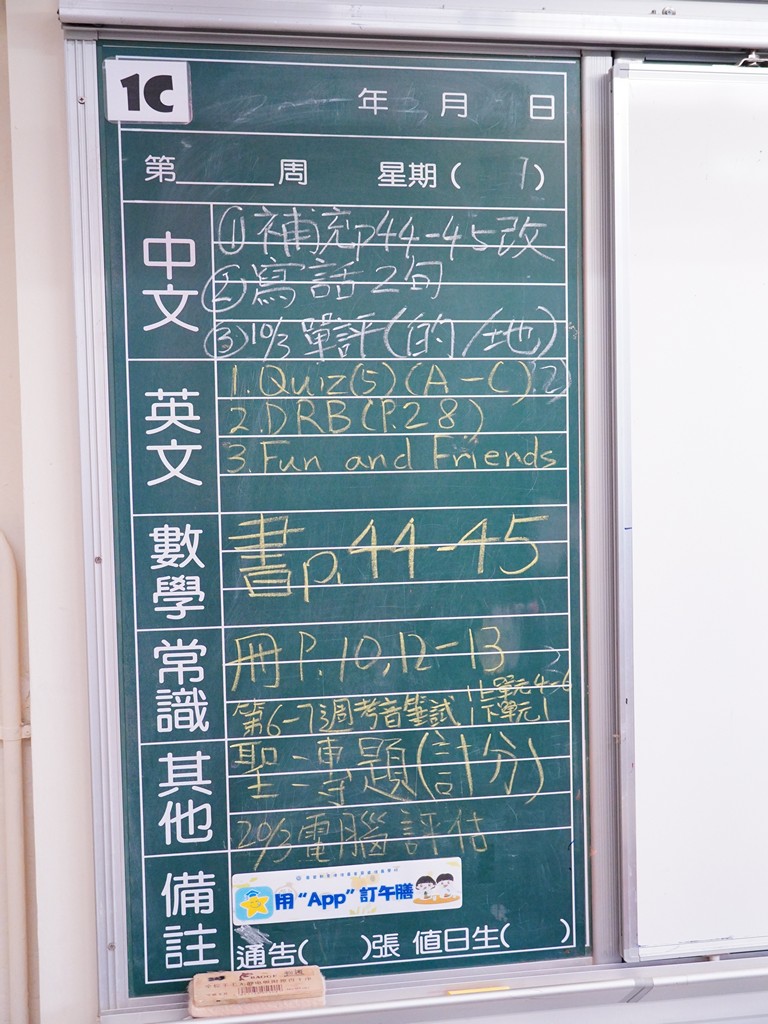 1C
年 月 日
第______周 星期( )
中文
①補充p44-45改
②寫話2句
③10/3單評(的/地)
英文
1. Quiz(5)(A-C)
2. DRB(P.28)
3. Fun and Friends
數學
書p.44-45
常識
冊P.10,12-13
第6-7週考音筆試 上單元4-6
下單元1
其他
聖-專題(計分)
20/3電腦評估
備註
用“App”訂午膳
通告( )張 值日生( )